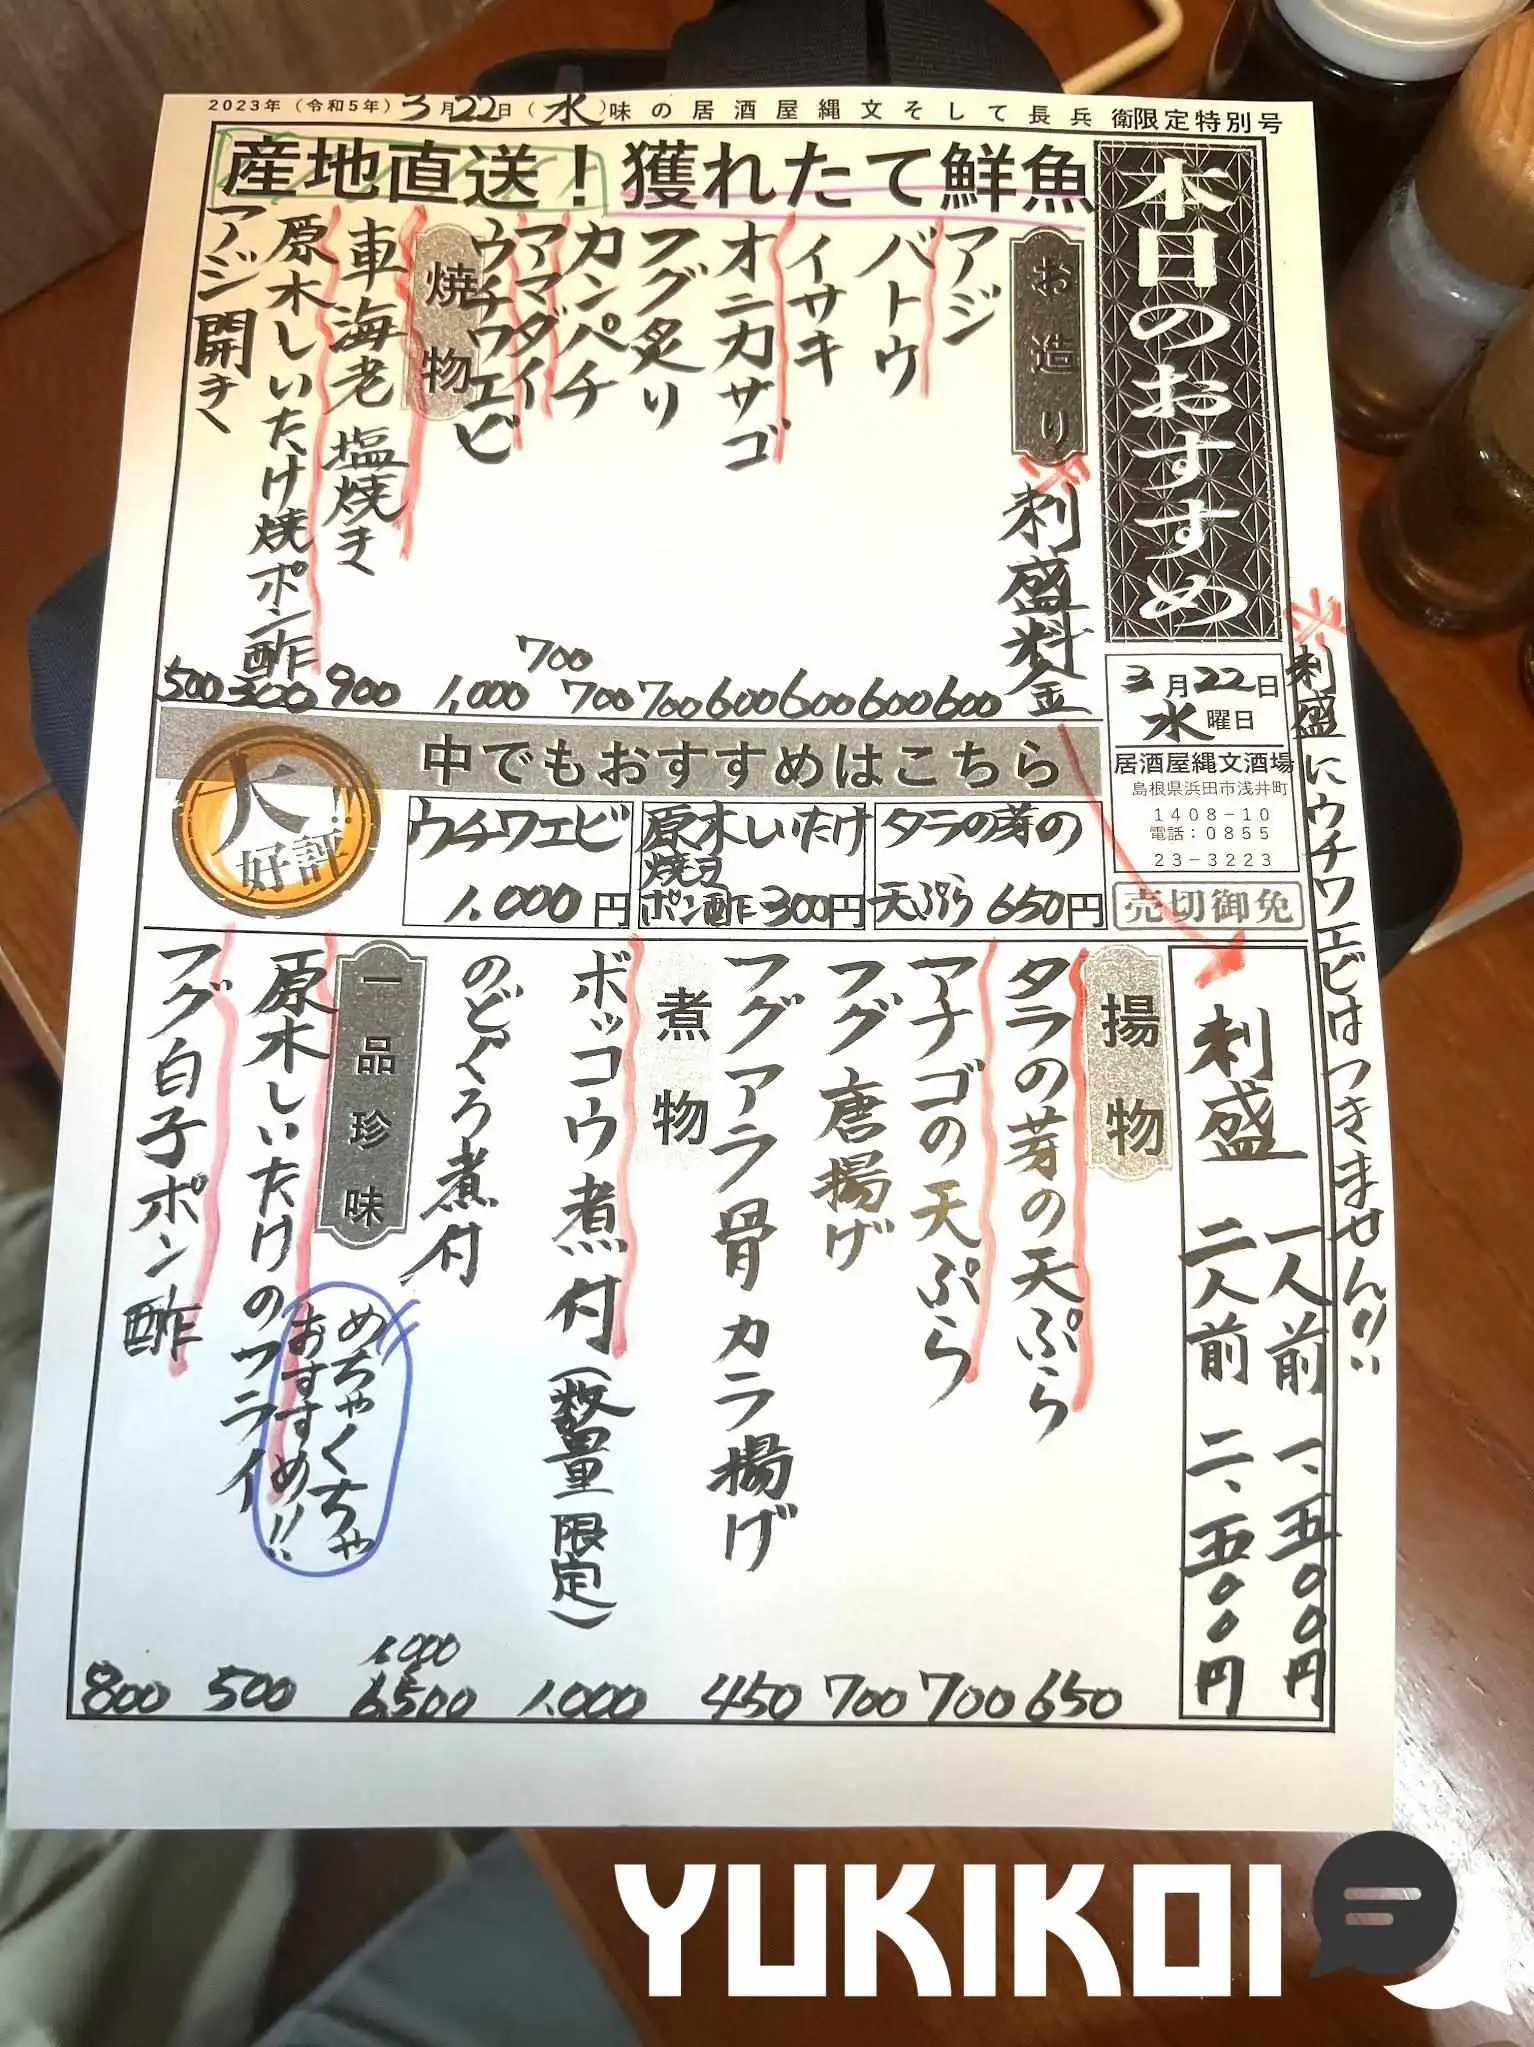 2023年（令和5年）3月22日（水）味の居酒屋縄文そして長兵衛限定特別号
本日のおすすめ
産地直送！獲れたて鮮魚
お造り
※刺盛料金
アジ
バトウ
イサキ
オニカサゴ
フグ炙り
カンパチ
アマダイ
ウチワエビ
焼物
車海老 塩焼き
原木しいたけ焼ポン酢
アジ開き
500 300 900 1,000 700 700 700 600 600 600 600
3月22日
水曜日
居酒屋縄文酒場
島根県浜田市浅井町
1408-10
電話：0855
23-3223
売切御免
※刺盛にウチワエビはつきません!!
中でもおすすめはこちら
大好評!!
タラの芽の
天ぷら 650円
原木しいたけ
焼き
ポン酢 300円
ウチワエビ
1,000円
刺盛
一人前 一、五〇〇円
二人前 二、五〇〇円
揚物
タラの芽の天ぷら
アナゴの天ぷら
フグ唐揚げ
フグアラ骨カラ揚げ
煮物
ボッコウ煮付（数量限定）
のどぐろ煮付
一品珍味
原木しいたけのフライ
※めちゃくちゃ
おすすめ!!
フグ白子ポン酢
800 500 1,000 6,500 1,000 450 700 700 650
YUKIKOI